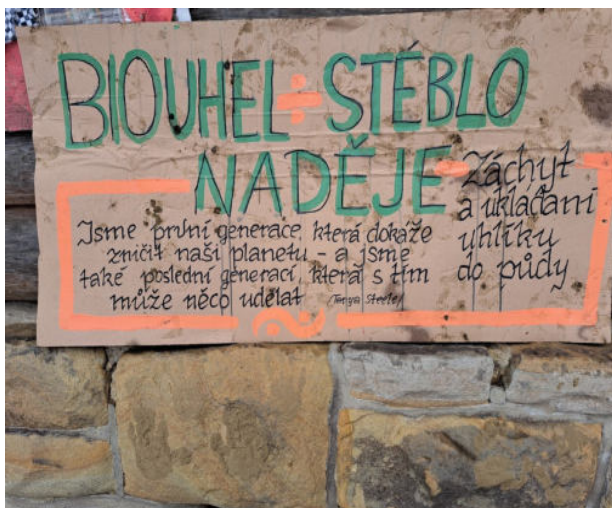 BIOUHEL ÷ STÉBLO
NADĚJE
Záchyt
a ukládání
uhlíku
do půdy
Jsme první generace, která dokáže
zničit naši planetu - a jsme
také poslední generací, která s tím
může něco udělat (Tanya Steele)